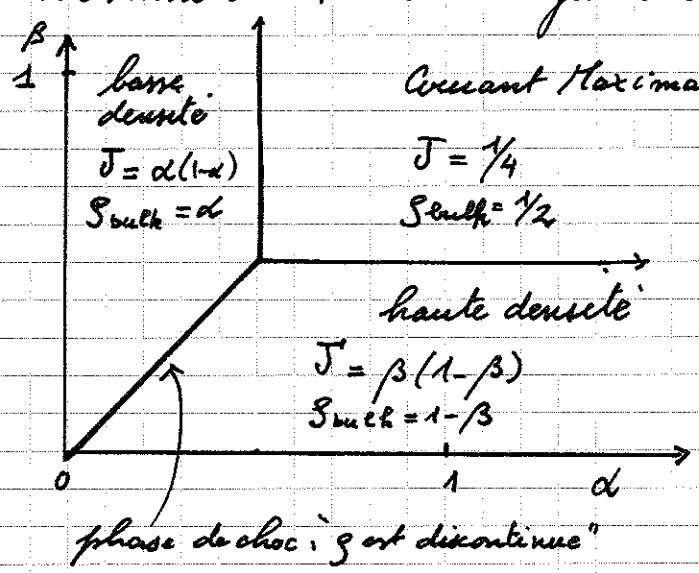 β
1
basse
densité
J = α(1-α)
ρ bulk = α
Courant Maxima
J = 1/4
ρ bulk = 1/2
haute densité
J = β(1-β)
ρ bulk = 1-β
0
1
α
phase de choc, ρ est discontinue"